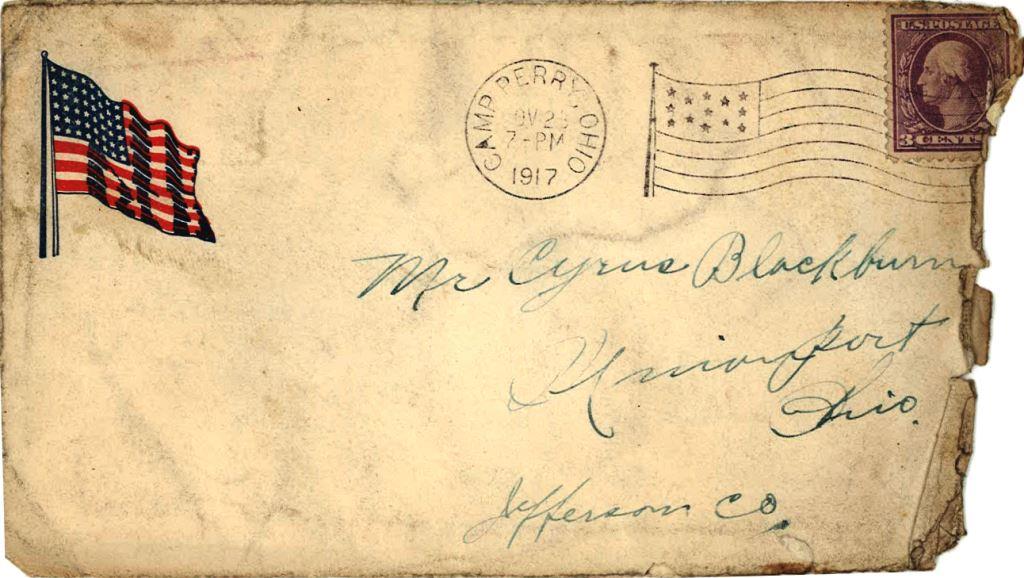 CAMP PERRY, OHIO
7-PM
1917
U.S. POSTAGE
3 CENTS
Mr Cyrus Blackburn
Unionport
Ohio.
Jefferson Co.